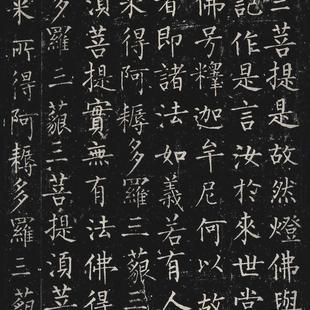 三菩提是故然燈佛與
記作是言汝於来世當
佛号釋迦牟尼何以故
者即諸法如義若有人
来得阿耨多羅三藐三
湏菩提實無有法佛得
多羅三藐三菩提湏菩
来所得阿耨多羅三藐